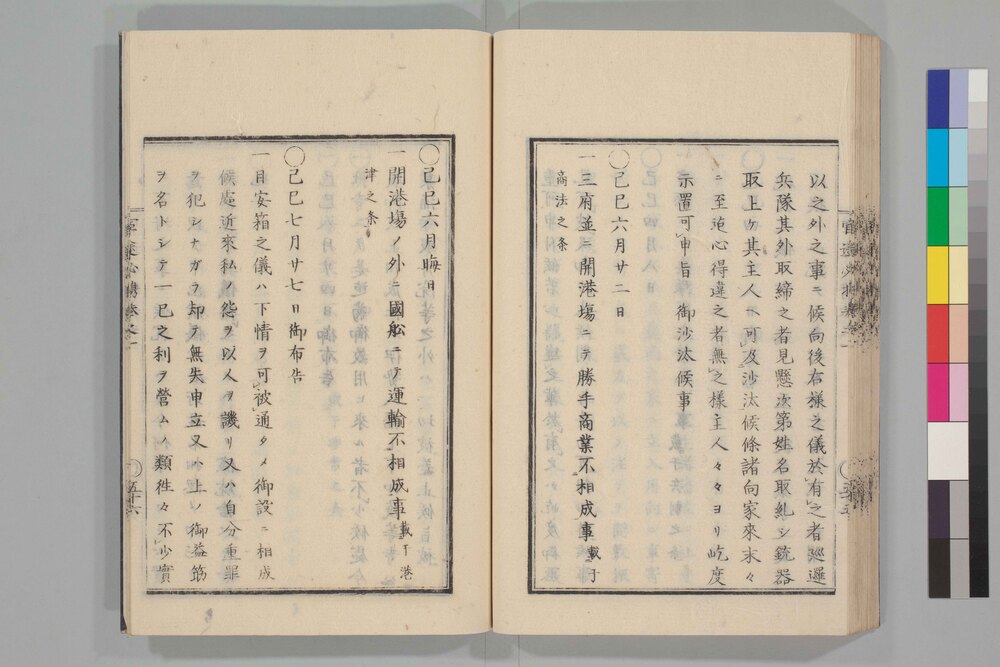 以之外之事ニ候向後右様之儀於有之者廵邏
兵隊其外取締之者見懸次第姓名取糺シ銃器
取上ケ其主人ヘ可及沙汰候條諸向家來末々
ニ至迠心得違之者無之樣主人々々ヨリ屹度
示置可申旨　御沙汰候事
〇己巳六月廿二日
一三府並ニ開港場ニテ勝手商業不相成事載于
商法之条
〇己巳六月晦日
一開港場ノ外ニ國舩ニテ運輸不相成事載于港
津之条
〇己巳七月廿七日御布告
一目安箱之儀ハ下情ヲ可被通タメ御設ニ相成
候處近來私ノ怨ヲ以人ヲ譏リ又ハ自分重罪
ヲ犯シナガラ却テ無失申立又ハ上ノ御益筋
ヲ名トシテ一已之利ヲ營ムノ類徃々不少實